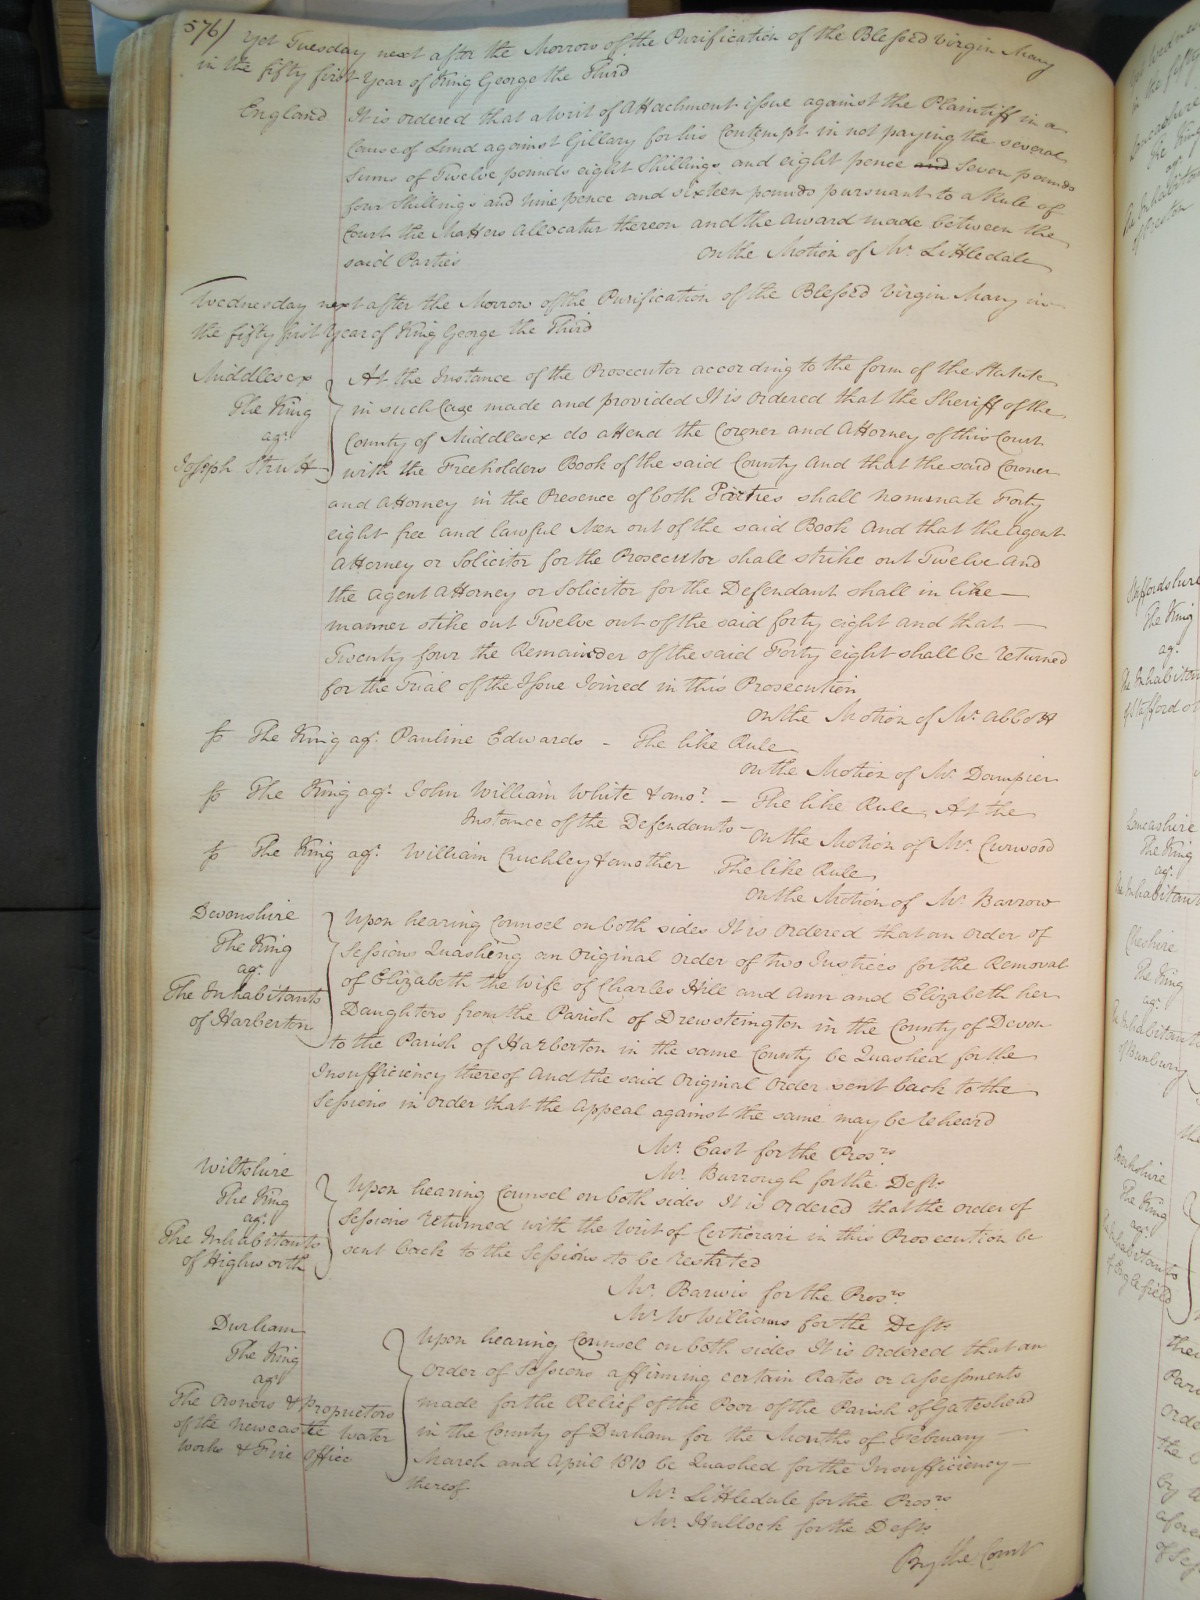 576)
Yet Tuesday next after the Morrow of the Purification of the Blessed Virgin Mary
in the fifty first Year of King George the Third
England
It is ordered that a Writ of Attachment issue against the Plaintiff in a
Cause of Lund against Gillary for his Contempt in not paying the several
Sums of Twelve pounds eight Shillings and eight pence and Seven pounds
four Shillings and nine pence and sixteen pounds pursuant to a Rule of
Court the Masters Allocatur thereon and the Award made between the
said Parties
On the Motion of Mr. Littledale
Wednesday next after the Morrow of the Purification of the Blessed Virgin Mary in
the fifty first Year of King George the Third
Middlesex
The King
agt.
Joseph Strutt
At the Instance of the Prosecutor according to the form of the Statute
in such Case made and provided It is ordered that the Sheriff of the
County of Middlesex do attend the Coroner and Attorney of this Court
with the Freeholders Book of the said County And that the said Coroner
and Attorney in the Presence of both Parties shall nominate Forty
eight free and lawful Men out of the said Book And that the Agent
Attorney or Solicitor for the Prosecutor shall strike out Twelve And
the Agent Attorney or Solicitor for the Defendant shall in like
manner stike out Twelve out of the said forty eight and that
Twenty four the Remainder of the said Forty eight shall be returned
for the Trial of the Issue Joined in this Prosecution
On the Motion of Mr. Abbott
The King agt. Pauline Edwards - The like Rule
On the Motion of Mr. Dampier
The King agt. John William White & anor. - The like Rule At the
Instance of the Defendants - On the Motion of Mr. Curwood
The King agt. William Cruchley & another The like Rule
On the Motion of Mr. Barrow
Devonshire
The King
agt.
The Inhabitants
of Harberton
Upon hearing Counsel on both sides It is ordered that an Order of
Sessions Quashing an Original Order of two Justices for the Removal
of Elizabeth the Wife of Charles Hill and Ann and Elizabeth her
Daughters from the Parish of Drewsteington in the County of Devon
to the Parish of Harberton in the same County be Quashed for the
Insufficiency thereof And the said Original Order sent back to the
Sessions in Order that the Appeal against the same may be reheard
Mr. East for the Prosrs
Mr. Burrough for the Defts
Wiltshire
The King
agt.
The Inhabitants
of Highworth
Upon hearing Counsel on both sides It is ordered that the Order of
Sessions returned with the Writ of Certiorari in this Prosecution be
sent back to the Sessions to be restated
Mr. Barwis for the Prosrs.
Mr. W Williams for the Defts
Durham
The King
agt
The Owners & Proprietors
of the Newcastle Water
Works & Fire Office
Upon hearing Counsel on both sides It is ordered that an
Order of Sessions affirming certain Rates or Assessments
made for the Relief of the Poor of the Parish of Gateshead
in the County of Durham for the Months of February
March and April 1810 be Quashed for the Insufficiency
thereof
Mr. Littledale for the Prosrs.
Mr. Hullock for the Defts
By the Court
Staffordshire
The King
agt.
The Inhabitants
of Stafford
Lancashire
The King
agt.
The Inhabitants
Cheshire
The King
agt.
The Inhabitants
of Bunbury
The King
agt.
The Inhabitants
of Englefield